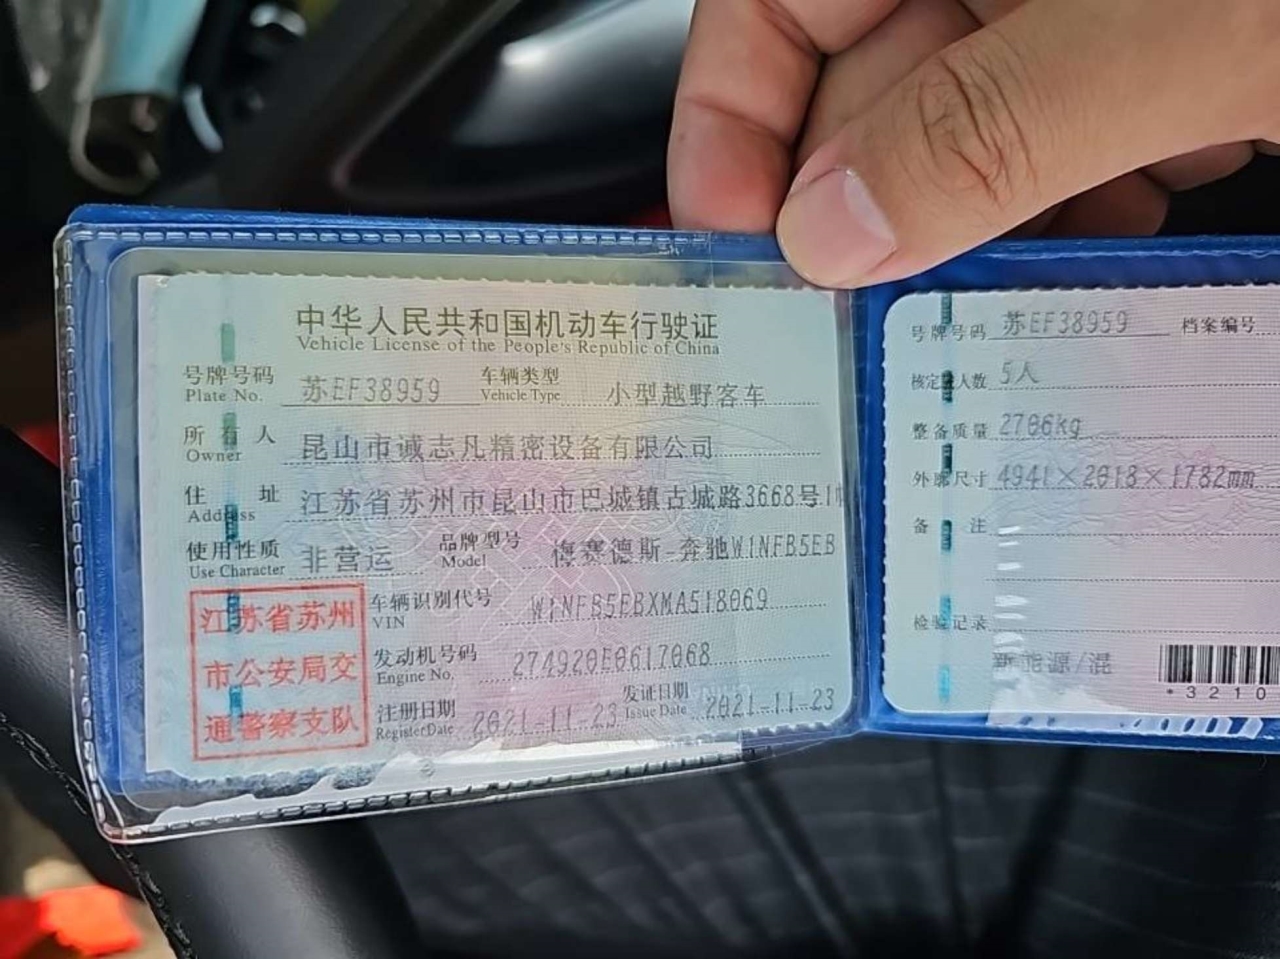 中华人民共和国机动车行驶证
Vehicle License of the People's Republic of China
号牌号码 苏EF38959 车辆类型 小型越野客车
Plate No. Vehicle Type
所有人 昆山市诚志凡精密设备有限公司
Owner
住址 江苏省苏州市昆山市巴城镇古城路3668号1
Address
使用性质 非营运 品牌型号 梅赛德斯-奔驰W1NFB5EB
Use Character Model
车辆识别代号 W1NFB5EBXMA518069
VIN
发动机号码 274920E0617068
Engine No.
注册日期 2021-11-23 发证日期 2021-11-23
Register Date Issue Date
江苏省苏州
市公安局交
通警察支队
号牌号码 苏EF38959 档案编号
核定载人数 5人
整备质量 2706kg
外廓尺寸 4941×2018×1782mm
备注
检验记录
新能源/混
*3210